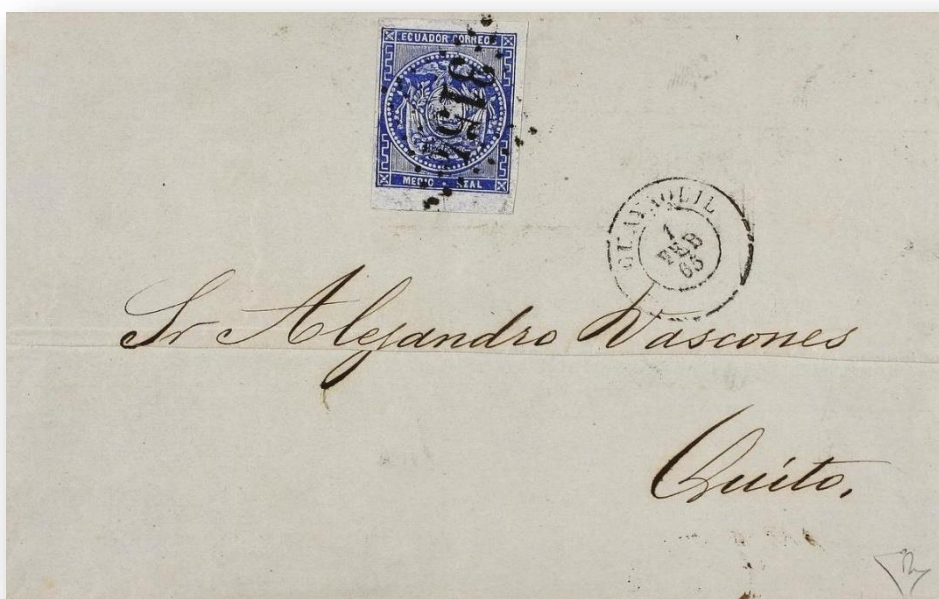 ECUADOR CORREOS
3154
MEDIO REAL
GUAYAQUIL
1
FEB
65
Sr Alejandro Vascones
Quito.